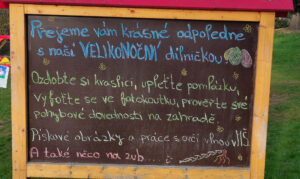 Přejeme vám krásné odpoledne
s naší VELIKONOČNÍ dílničkou
Ozdobte si kraslici, upleťte pomlázku,
vyfoťte se ve fotokoutku, prověřte své
pohybové dovednosti na zahradě.
Pískové obrázky a práce s ovčí vlnou v MŠ
A také něco na zub.....